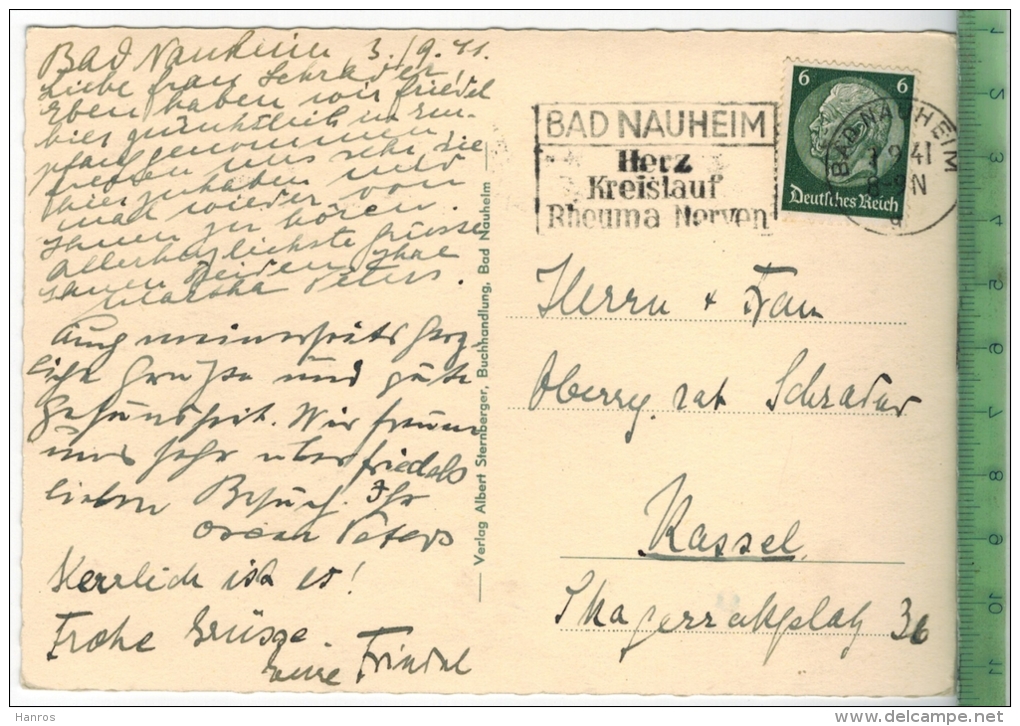 Bad Nauheim 3./9.41.
Liebe Frau Schrader!
Eben haben wir Friedel
hier in Em-
pfang genommen
freuen uns sehr sie
hier zu haben und
mal wieder von
Ihnen zu hören.
Allerherzlichste Grüsse
Ihnen Beiden Ihre
Martha Peters.
Auch meinerseits herz-
liche Grüße und gute
Gesundheit. Wir freuen
uns sehr über Friedels
lieben Besuch. Ihr
Oscar Peters
Herrlich ist es!
Frohe Grüsse.
Eure Friedel
Verlag Albert Sternberger, Buchhandlung, Bad Nauheim
BAD NAUHEIM
Herz
Kreislauf
Rheuma Nerven
6 6
Deutsches Reich
BAD NAUHEIM
9.41
8-9 N
Herrn + Frau
Oberreg. rat Schrader
Kassel
Skagerrakplatz 36
1 5 3 4 5 6 7 8 9 10 11
Hanros
delcampe.net